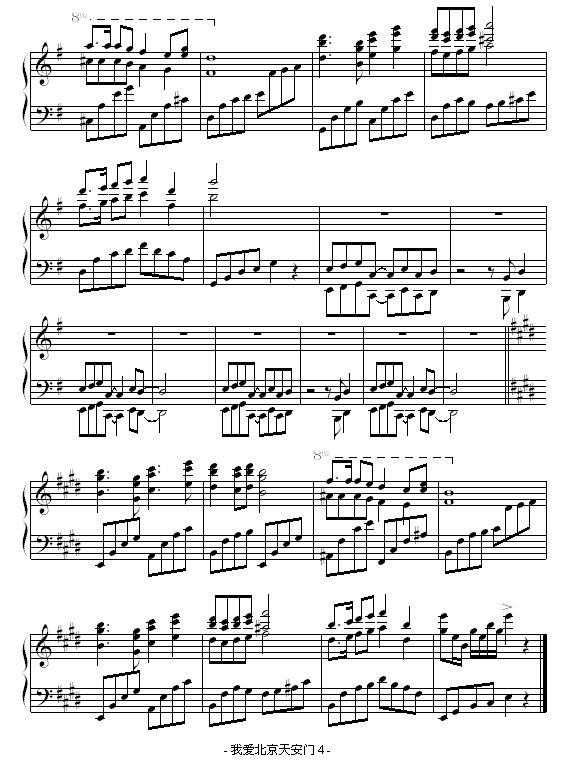 8va
8va
- 我爱北京天安门 4 -